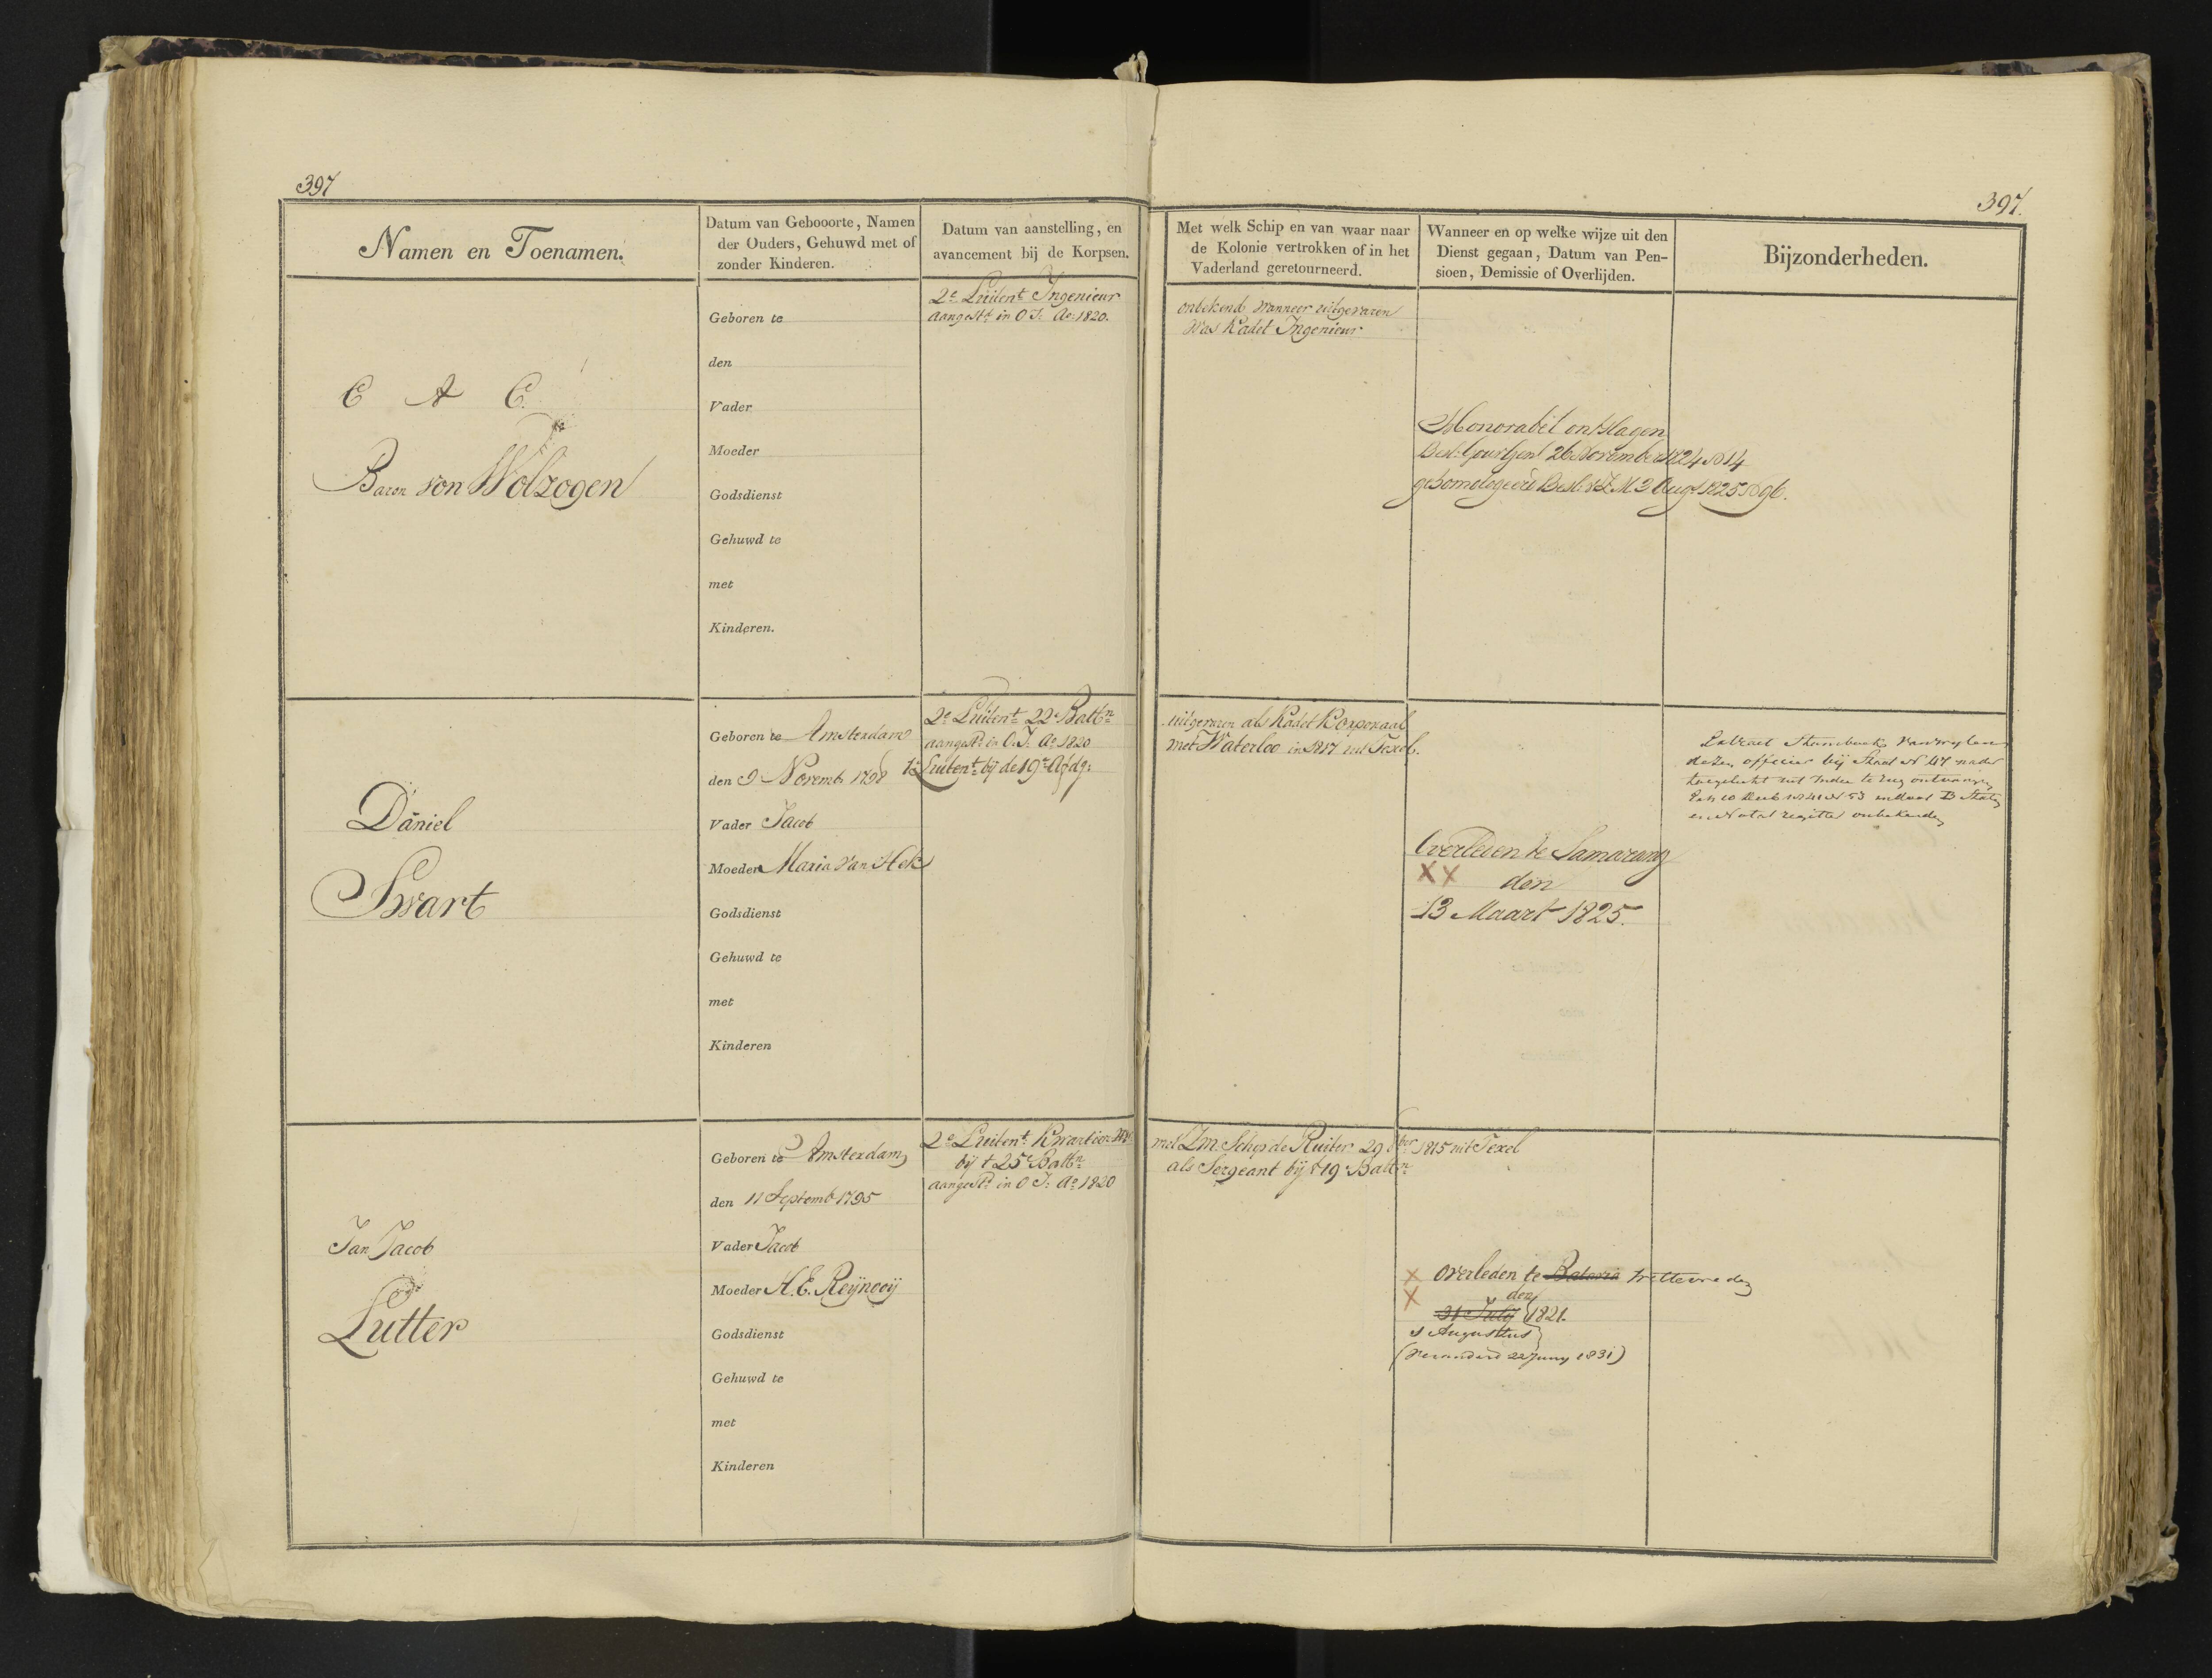 397
397.
Namen en Toenamen.
Datum van Gebooorte, Namen
der Ouders, Gehuwd met of
zonder Kinderen.
Datum van aanstelling, en
avancement bij de Korpsen.
Met welk Schip en van waar naar
de Kolonie vertrokken of in het
Vaderland geretourneerd.
Wanneer en op welke wijze uit den
Dienst gegaan, Datum van Pen-
sioen, Demissie of Overlijden.
Bijzonderheden.
C A C.
Baron von Wolzogen
Geboren te
den
Vader
Moeder
Godsdienst
Gehuwd te
met
Kinderen.
2e Luitent Ingenieur
aangestt in O I: Ao: 1820.
onbekend wanneer uitgevaren
Was Kadet Ingenieur
Honorabel ontslagen
Besl: Gour Genl 26 November 1824 No 14
gehomologeerd Besl: v Z M 3 Augt 1825 No 96.
Daniel
Swart
Geboren te Amsterdam
den 9 Novemb 1798
Vader Jacob
Moeder Maria van Hek
Godsdienst
Gehuwd te
met
Kinderen
2e Luitent 22e Battn
aangestd in O. I: Ao 1820
1e Luitent bij de 19e Afdg:
uitgevaren als Kadet Korporaal
met Waterloo in 1817 uit Texel.
Overleden te Samarang
XX den
13 Maart 1825.
Extract Stamboek van wylen
dezen officier bij Staat No 47 nader
toegelicht uit Indie te rug ontvangen
10 1841 No 53
en register onbekend
Jan Jacob
Lutter
Geboren te Amsterdam
den 11 Septemb 1795
Vader Jacob
Moeder H. E. Reijnooij
Godsdienst
Gehuwd te
met
Kinderen
2e Luitent Kwartier Mr
bij t 25e Battn
aangestd in O I: Ao 1820
met Zm. Schip de Ruiter 29 8ber 1815 uit Texel
als Sergeant bij t 19e Battn
X overleden te Batavia Weltevreden
X den
31 July 1821.
1 Augustus
(veranderd 22 Juny 1831)